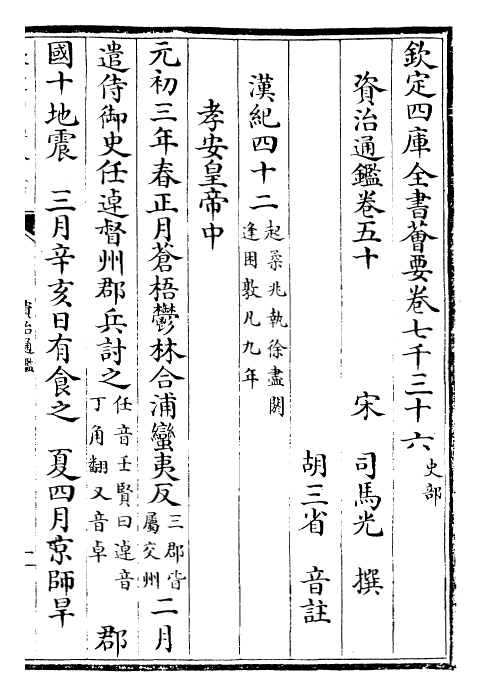 欽定四庫全書薈要卷七千三十六 史部
資治通鑑卷五十
宋 司馬光 撰
胡三省 音註
漢紀四十二 起柔兆執徐盡閼逢困敦凡九年
孝安皇帝中
元初三年春正月蒼梧鬱林合浦蠻夷反 三郡皆屬交州 二月
遣侍御史任逴督州郡兵討之 任音壬賢曰逴音丁角翻又音卓 郡
國十地震 三月辛亥日有食之 夏四月京師旱
資治通鑑